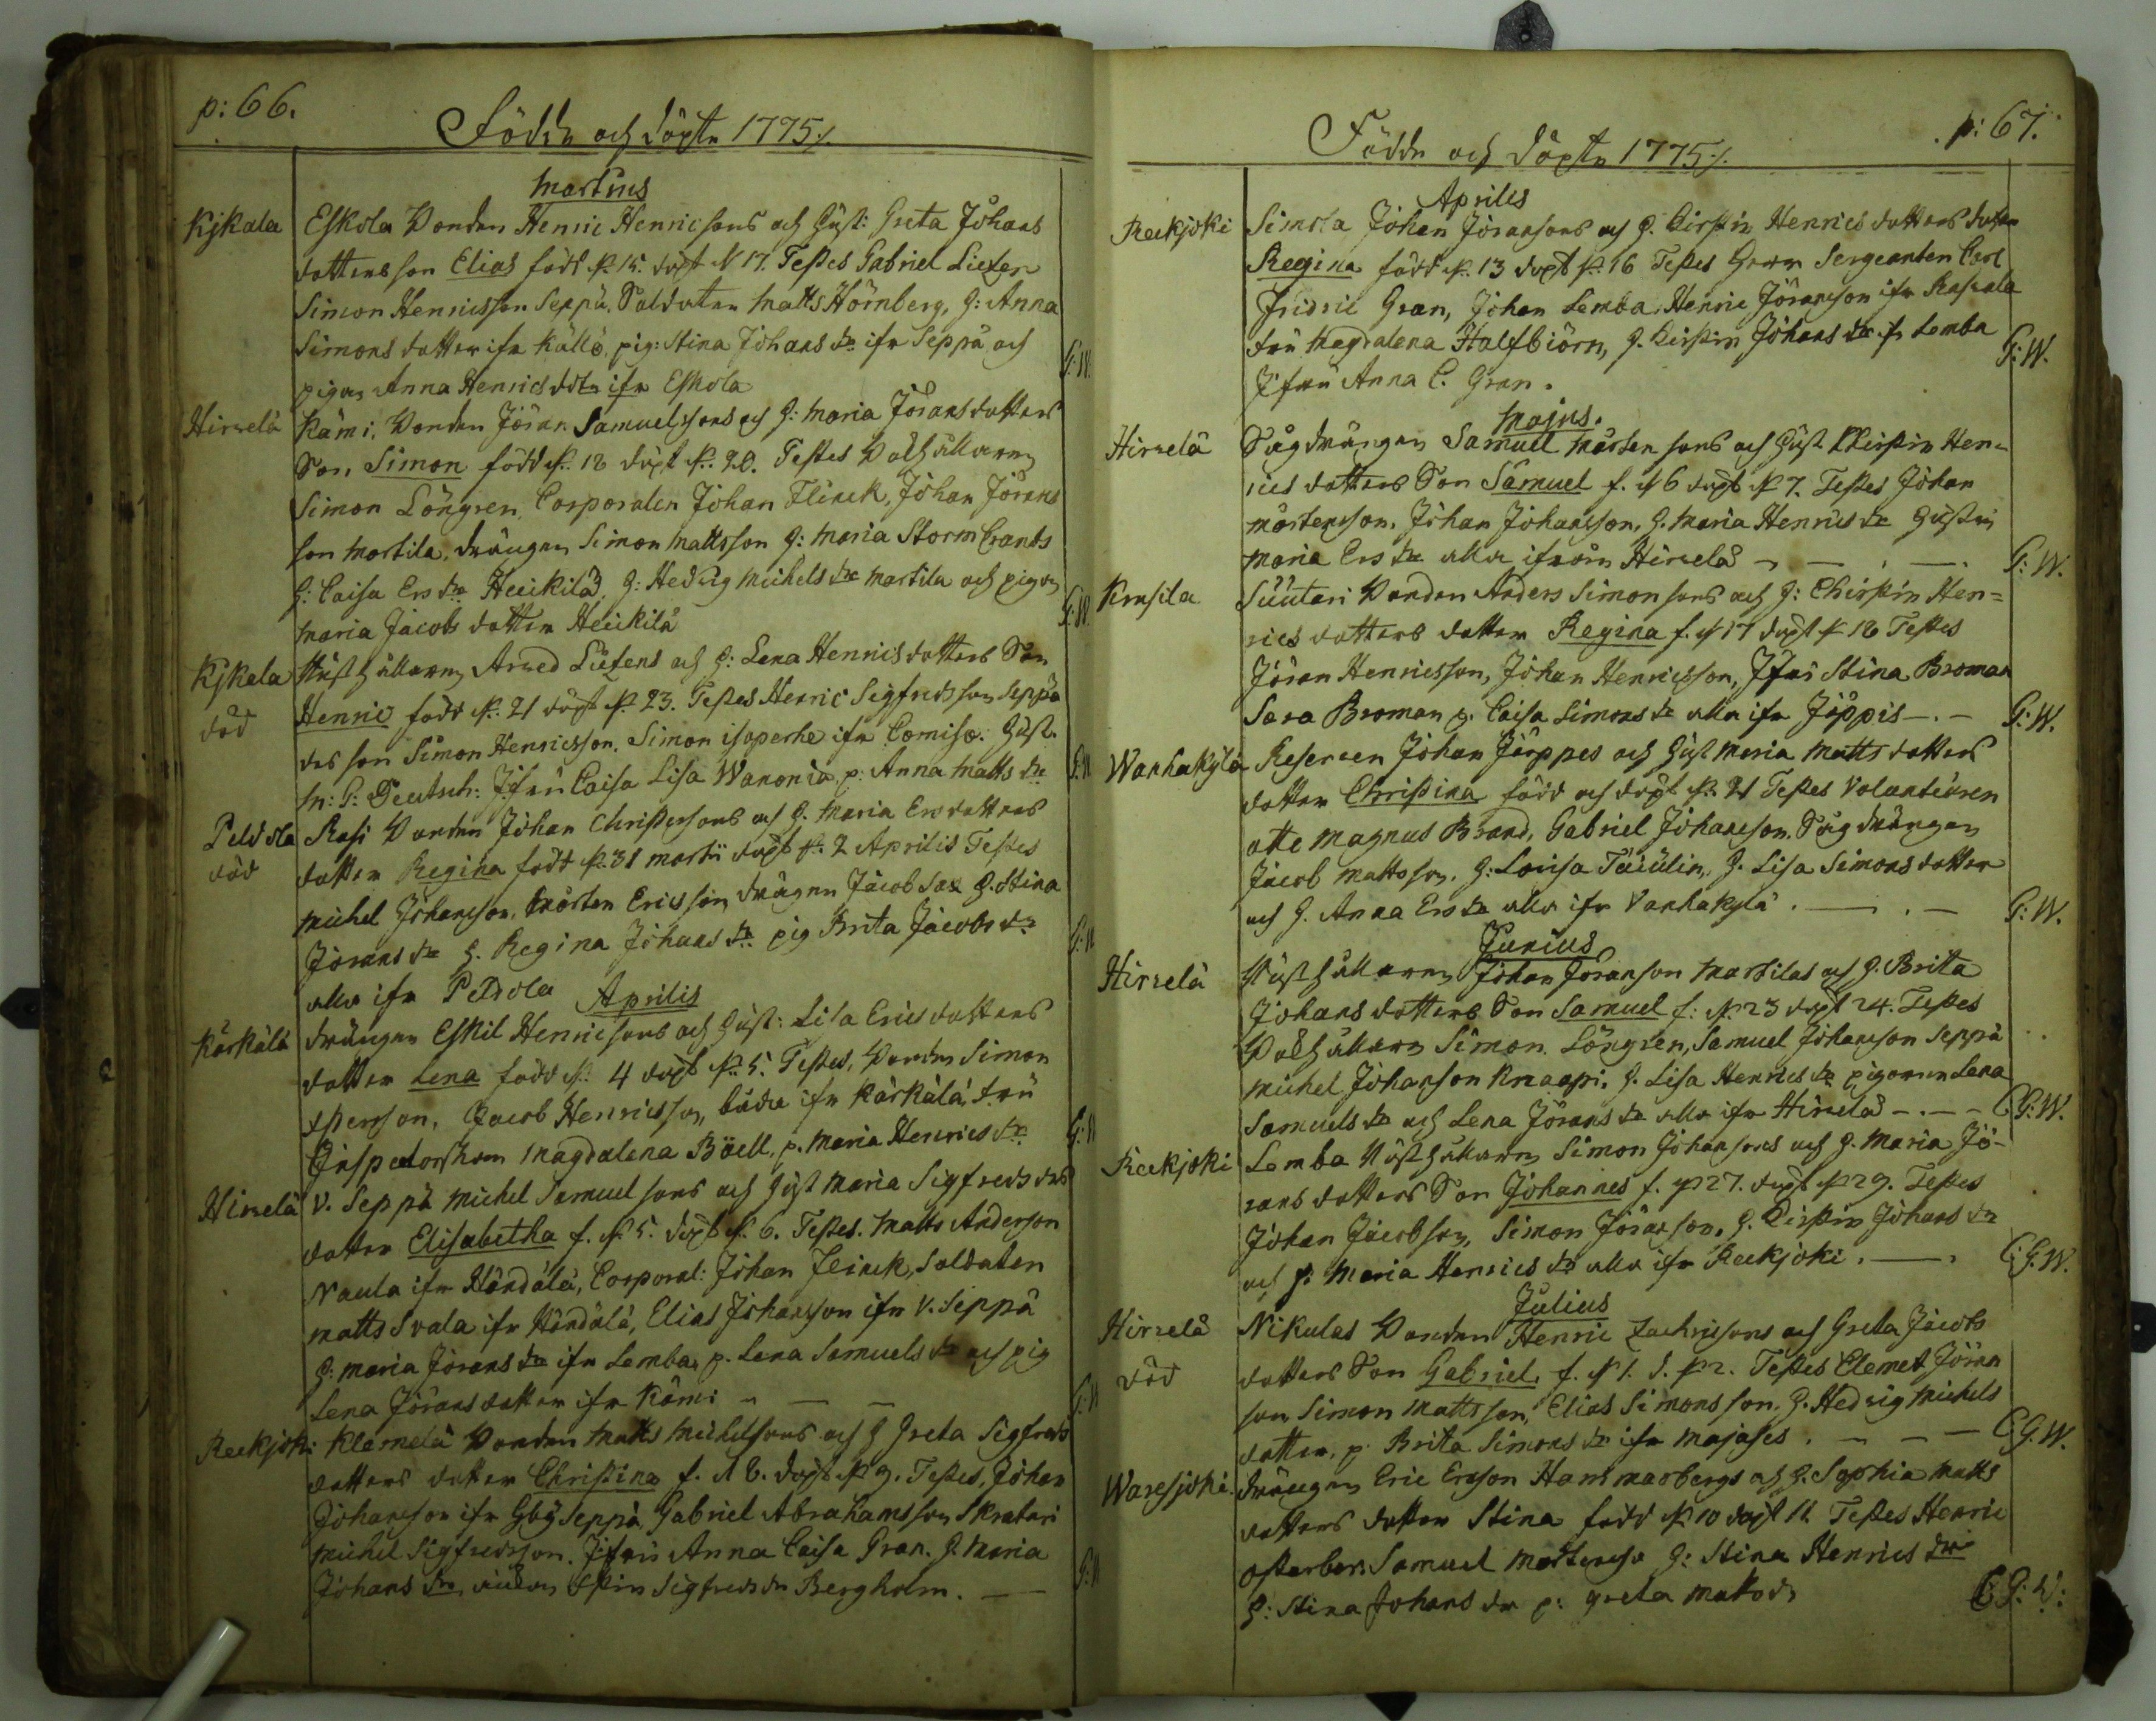 p: 66.
Födde och döpte 1775 ⁒
Martius
Kjkala Eskola Bonden Henric Henricsons och Hust: Greta Johans
dotters son Elias född d. 15. döpt d 17. Testes Gabriel Liefen
Simon Henricsson Seppä, Soldaten Matts Hörnberg, H: Anna
Simons dotter ifr Källö, pig: Stina Johans dr ifr Seppä och
pigan Anna Henrics dotr ifr Eskola G: W.
Hirvelä Kämi Bonden Jöran Samuelssons och H: Maria Jörans dotters
Son Simon född d. 18 döpt d. 20. Testes
Simon Löngren, Corporalen Johan Flinck, Johan Jörans
son Martila, drängen Simon Mattsson H: Maria Storm Crants
H: Caisa Ers dr Heickilä, H: Hedvig Michels dr Martila och pigan
Maria Jacobs dotter Heickilä G: W.
Kjkala Rusthållaren Arved Liefens och H: Lena Henrics dotters Son
död Henric född d. 21 döpt d. 23. Testes Henric Sigfredsson Seppä
des son Simon Henricsson, Simon isoperhe ifr Hust.
Jfru Caisa Lisa Wanonia, p: Anna Matts dr
Peldola Rasi Bonden Johan Christersons och H. Maria Ers dotters
död dotter Regina född d. 31 Martii döpt d. 2 Aprilis Testes
Michel Johansson, Mårten Ericsson, drängen Jacob Sax H. Stina
Jörans dr H. Regina Johans dr pig Brita Jacobs dr
alla ifr Peldola
Aprilis
Kärkälä drängen Eskil Henricsons och Hust: Lisa Erics dotters
dotter Lena född d. 4 döpt d. 5. Testes, Bonden Simon
Jacob Henricsson, både ifr Kärkälä, Fru
Inspectorskan Magdalena Böell, p. Maria Henrics dr
Hirvelä V. Seppä Michel Samuelsons och Hust Maria Sigfreds drs
dotter Elisabetha f. d. 5. döpt d. 6. Testes. Matts Anderson
Naula ifr Händälä, Corporal: Johan Flinck, Soldaten
Matts Svala ifr Händälä, Elias Johansson ifr V. Seppä
H: Maria Jörans dr ifr Lemba, p. Lena Samuels dr och pig
Lena Jörans dotter ifr Kämi
Reckjoki Klemelä Bonden Matts Michelsons och H Greta Sigfreds
dotters dotter Christina f. d 8. döpt d 9. Testes, Johan
Johansson ifr Seppä, Gabriel Abrahamsson Skratari
Michel Sigfredsson, Jfru Anna Caisa Gran. H. Maria
Johans dr, Sigfreds dr Bergholm.
p: 67.
Födde och döpte 1775 ⁒
Aprilis
Reckjoki Simola Johan Jöransons och H. Kirstin Henrics dotters dotter
Regina född d. 13 döpt d. 16 Testes Herr Sergeanten Carl
Fridric Gran, Johan Lemba, Henric Jöranson ifr Rasala
Fru Magdalena Halfbiörn, H. Kirstin Johans dr ifr Lemba
Jfru Anna C. Gran. G: W.
Majus.
Hirvelä Sågdrängen Samuel Mårtensons och Hust Kirstin Hen=
rics dotters Son Samuel f. d 6 döpt d 7. Testes Johan
Mårtensson, Johan Johansson, H. Maria Henrics dr Hustru
Maria Ers dr alla ifrån Hirvelä G: W.
Krusila Suutari Bonden Anders Simonsons och H: Christin Hen=
rics dotters dotter Regina f. d 17 döpt d 18 Testes
Jöran Henricsson, Johan Henricsson, Jfru Stina Broman
Sara Broman p. Caisa Simons dr alla ifr Joppis G: W.
Wanhakylä Reserven Johan Järppes och Hust Maria Matts dotters
dotter Christina född och döpt d. 21 Testes Volanteuren
Otto Magnus Brand, Gabriel Johansson, Sågdrängen
Jacob Mattsson, H: Lovisa H. Lisa Simons dotter
och H. Anna Ers dr alla ifr Vanhakylä G: W.
Junius
Hirvelä Rusthållaren Johan Jöranson Martilas och H. Brita
Johans dotters Son Samuel f: d. 23 döpt 24. Testes
Simon Löngren, Samuel Johansson Seppä
Michel Johanson Knaapi, H. Lisa Henrics dr pigorna Lena
Samuels dr och Lena Jörans dr alla ifr Hirvelä C G: W.
Reckjoki Lemba Rusthållaren Simon Johansons och H. Maria Jö-
rans dotters Son Johannes f. d 27. döpt d 29. Testes
Johan Jacobson, Simon Jöranson, H. Kirstin Johans dr
och p: Maria Henrics dr alla ifr Reckjoki. C: G. W.
Julius
Hirvelä Nikulas Bonden Henric Zachrissons och Greta Jacobs
död dotters Son Gabriel, f. d 1. d. d 2. Testes Clemet Jöran
son, Simon Mattsson, Elias Simonsson, H. Hedvig Michels
dotter, p: Brita Simons dr ifr Majases C. G. W.
Waresjoki. drängen Eric Ersson Hammarbergs och H. Sophia Matts
dotters dotter Stina född d. 10 döpt 11. Testes Henric
Samuel Mårtensson H: Stina Henrics dr
H: Stina Johans dr p: greta Matts dr C G: W: